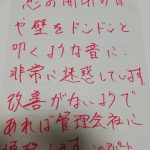 窓の開れの音
や壁をドンドンと
叩くような音に、
非常に迷惑しています
改善がないようで
あれば管理会社に
連絡します。